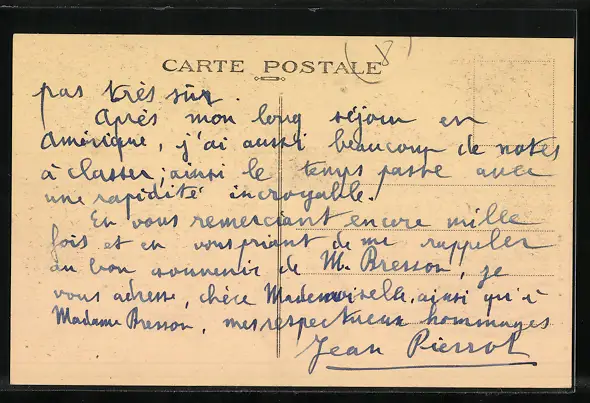 (8)
CARTE POSTALE
pas très sûr.
Après mon long séjour en
Amérique, j'ai aussi beaucoup de notes
à classer; ainsi le temps passe avec
une rapidité incroyable.
En vous remerciant encore mille
fois et en vous priant de me rappeler
au bon souvenir de M. Bresson, je
vous adresse, chère Mademoiselle, ainsi qu'à
Madame Bresson, mes respectueux hommages
Jean Pierrot